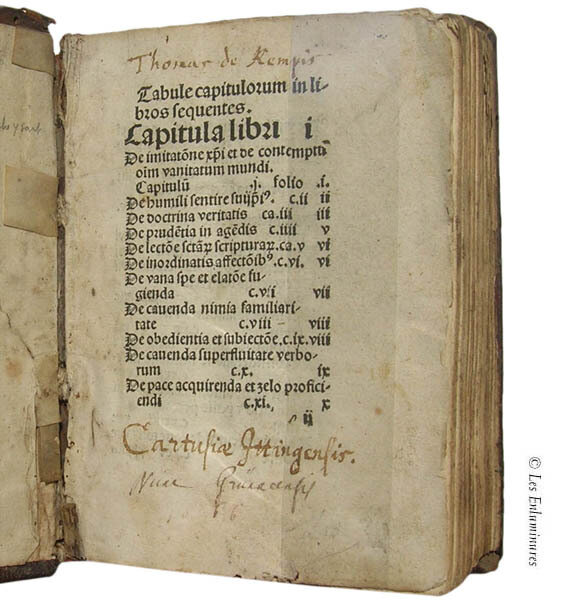 Thomas de Kempis
Tabule capitulorum in li-
bros sequentes.
Capitula libri i
De imitatõne xp̃i et de contemptu
oĩm vanitatum mundi.
Capitulũ .j. folio .i.
De humili sentire suijp̃iꝰ. c.ii ii
De doctrina veritatis ca.iii iii
De prudẽtia in agẽdis c.iiii v
De lectõe sctãꝝ scripturaꝝ.ca.v v
De inordinatis affectõibꝰ.c.vi. vi
De vana spe et elatõe fu-
gienda c.vii vii
De cauenda nimia familiari-
tate c.viii viii
De obedientia et subiectõe.c.ix.viii
De cauenda superfluitate verbo-
rum c.x. ix
De pace acquirenda et zelo profici-
endi c.xi. x
ij
Cartusiæ Ittingensis.
Nunc
© Les Enluminures